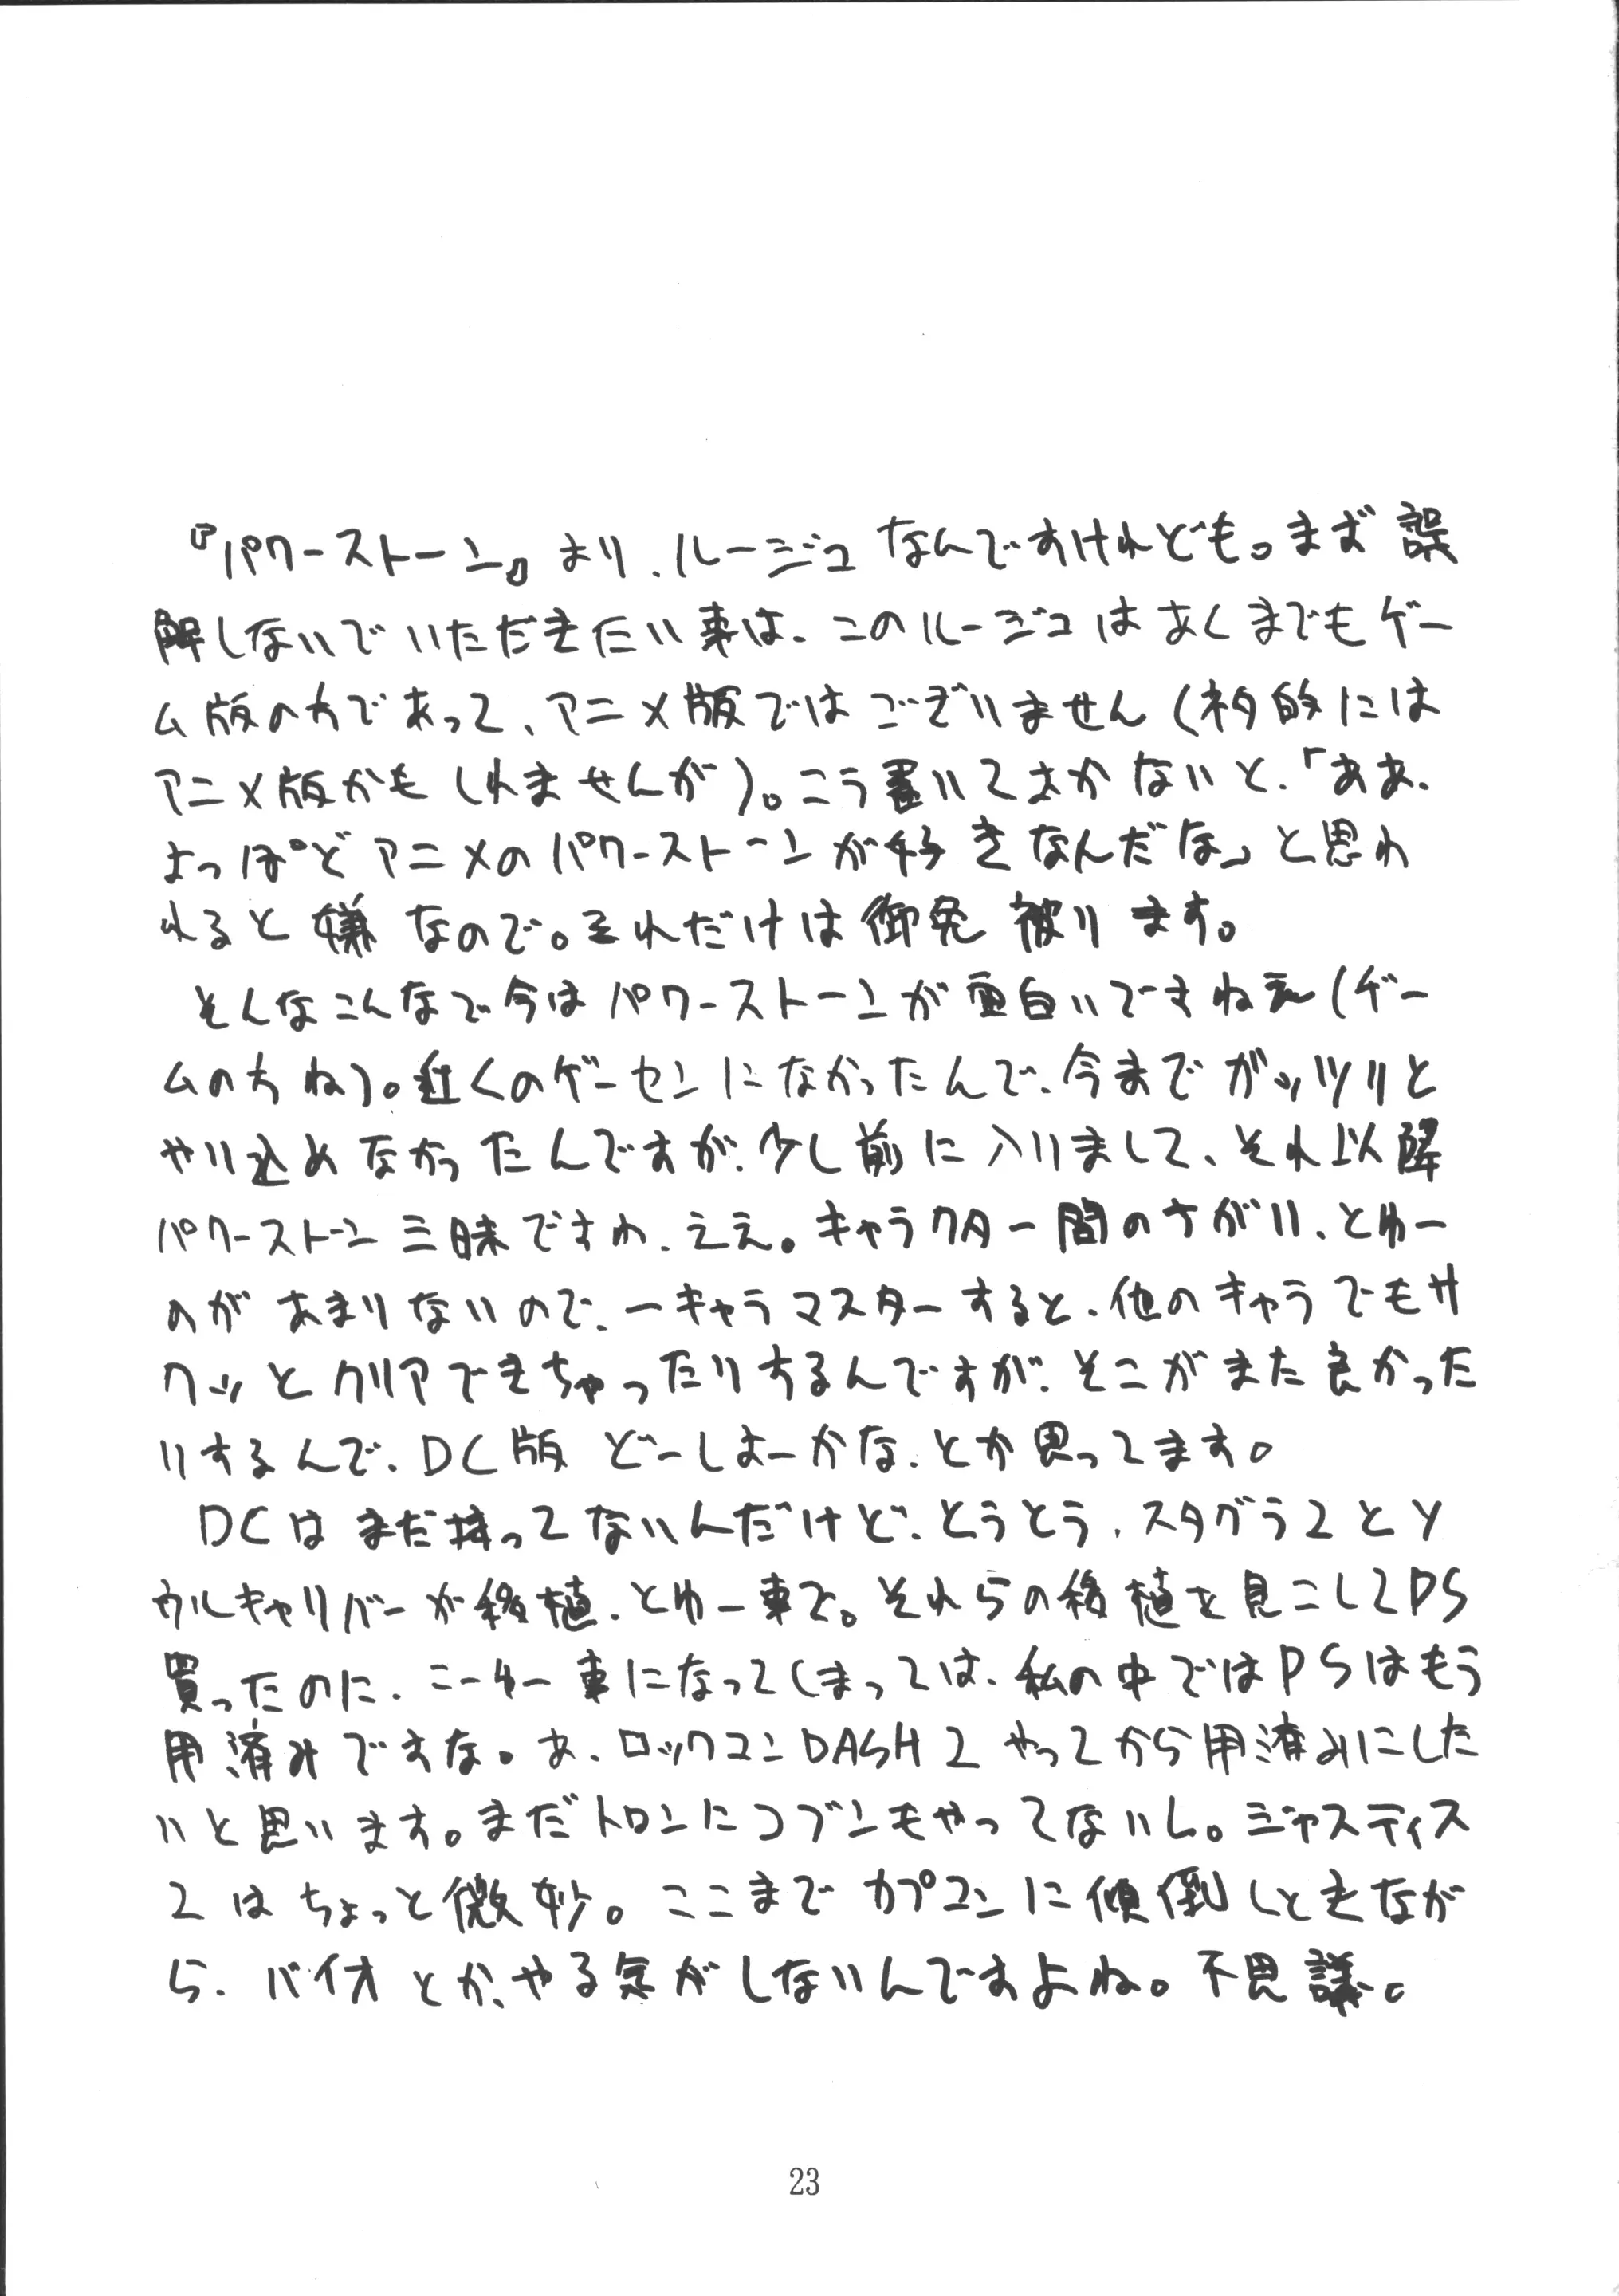 『パワーストーン』より、ルージュなんですけれども。まず誤
解しないでいただきたい事は、このルージュはあくまでもゲー
ム版の方であって、アニメ版ではございません(ネタ的には
アニメ版かもしれませんが)。こう書いておかないと、「ああ、
よっぽどアニメのパワーストーンが好きなんだな」と思わ
れると嫌なので。それだけは御免被ります。
そんなこんなで今はパワーストーンが面白いですねえ(ゲー
ムの方ね)。近くのゲーセンになかったんで、今までガッツリと
やり込めなかったんですが、少し前に入りまして、それ以降
パワーストーン三昧ですわ、ええ。キャラクター間のちがい、とゆー
のがあまりないので、一キャラマスターすると、他のキャラでもサ
クッとクリアできちゃったりするんですが、そこがまた良かった
りするんで、DC版どーしよーかな、とか思ってます。
DCはまだ持ってないんだけど、とうとう、スタグラ2とソ
ウルキャリバーが移植、とゆー事で。それらの移植を見こしてPS
買ったのに、こーゆー事になってしまっては、私の中ではPSはもう
用済みですな。あ、ロックマンDASH2やってから用済みにした
いと思います。まだトロンにコブンもやってないし。ジャスティス
2はちょっと微妙。ここまでカプコンに傾倒しときなが
ら、バイオとか、やる気がしないんですよね。不思議。
23